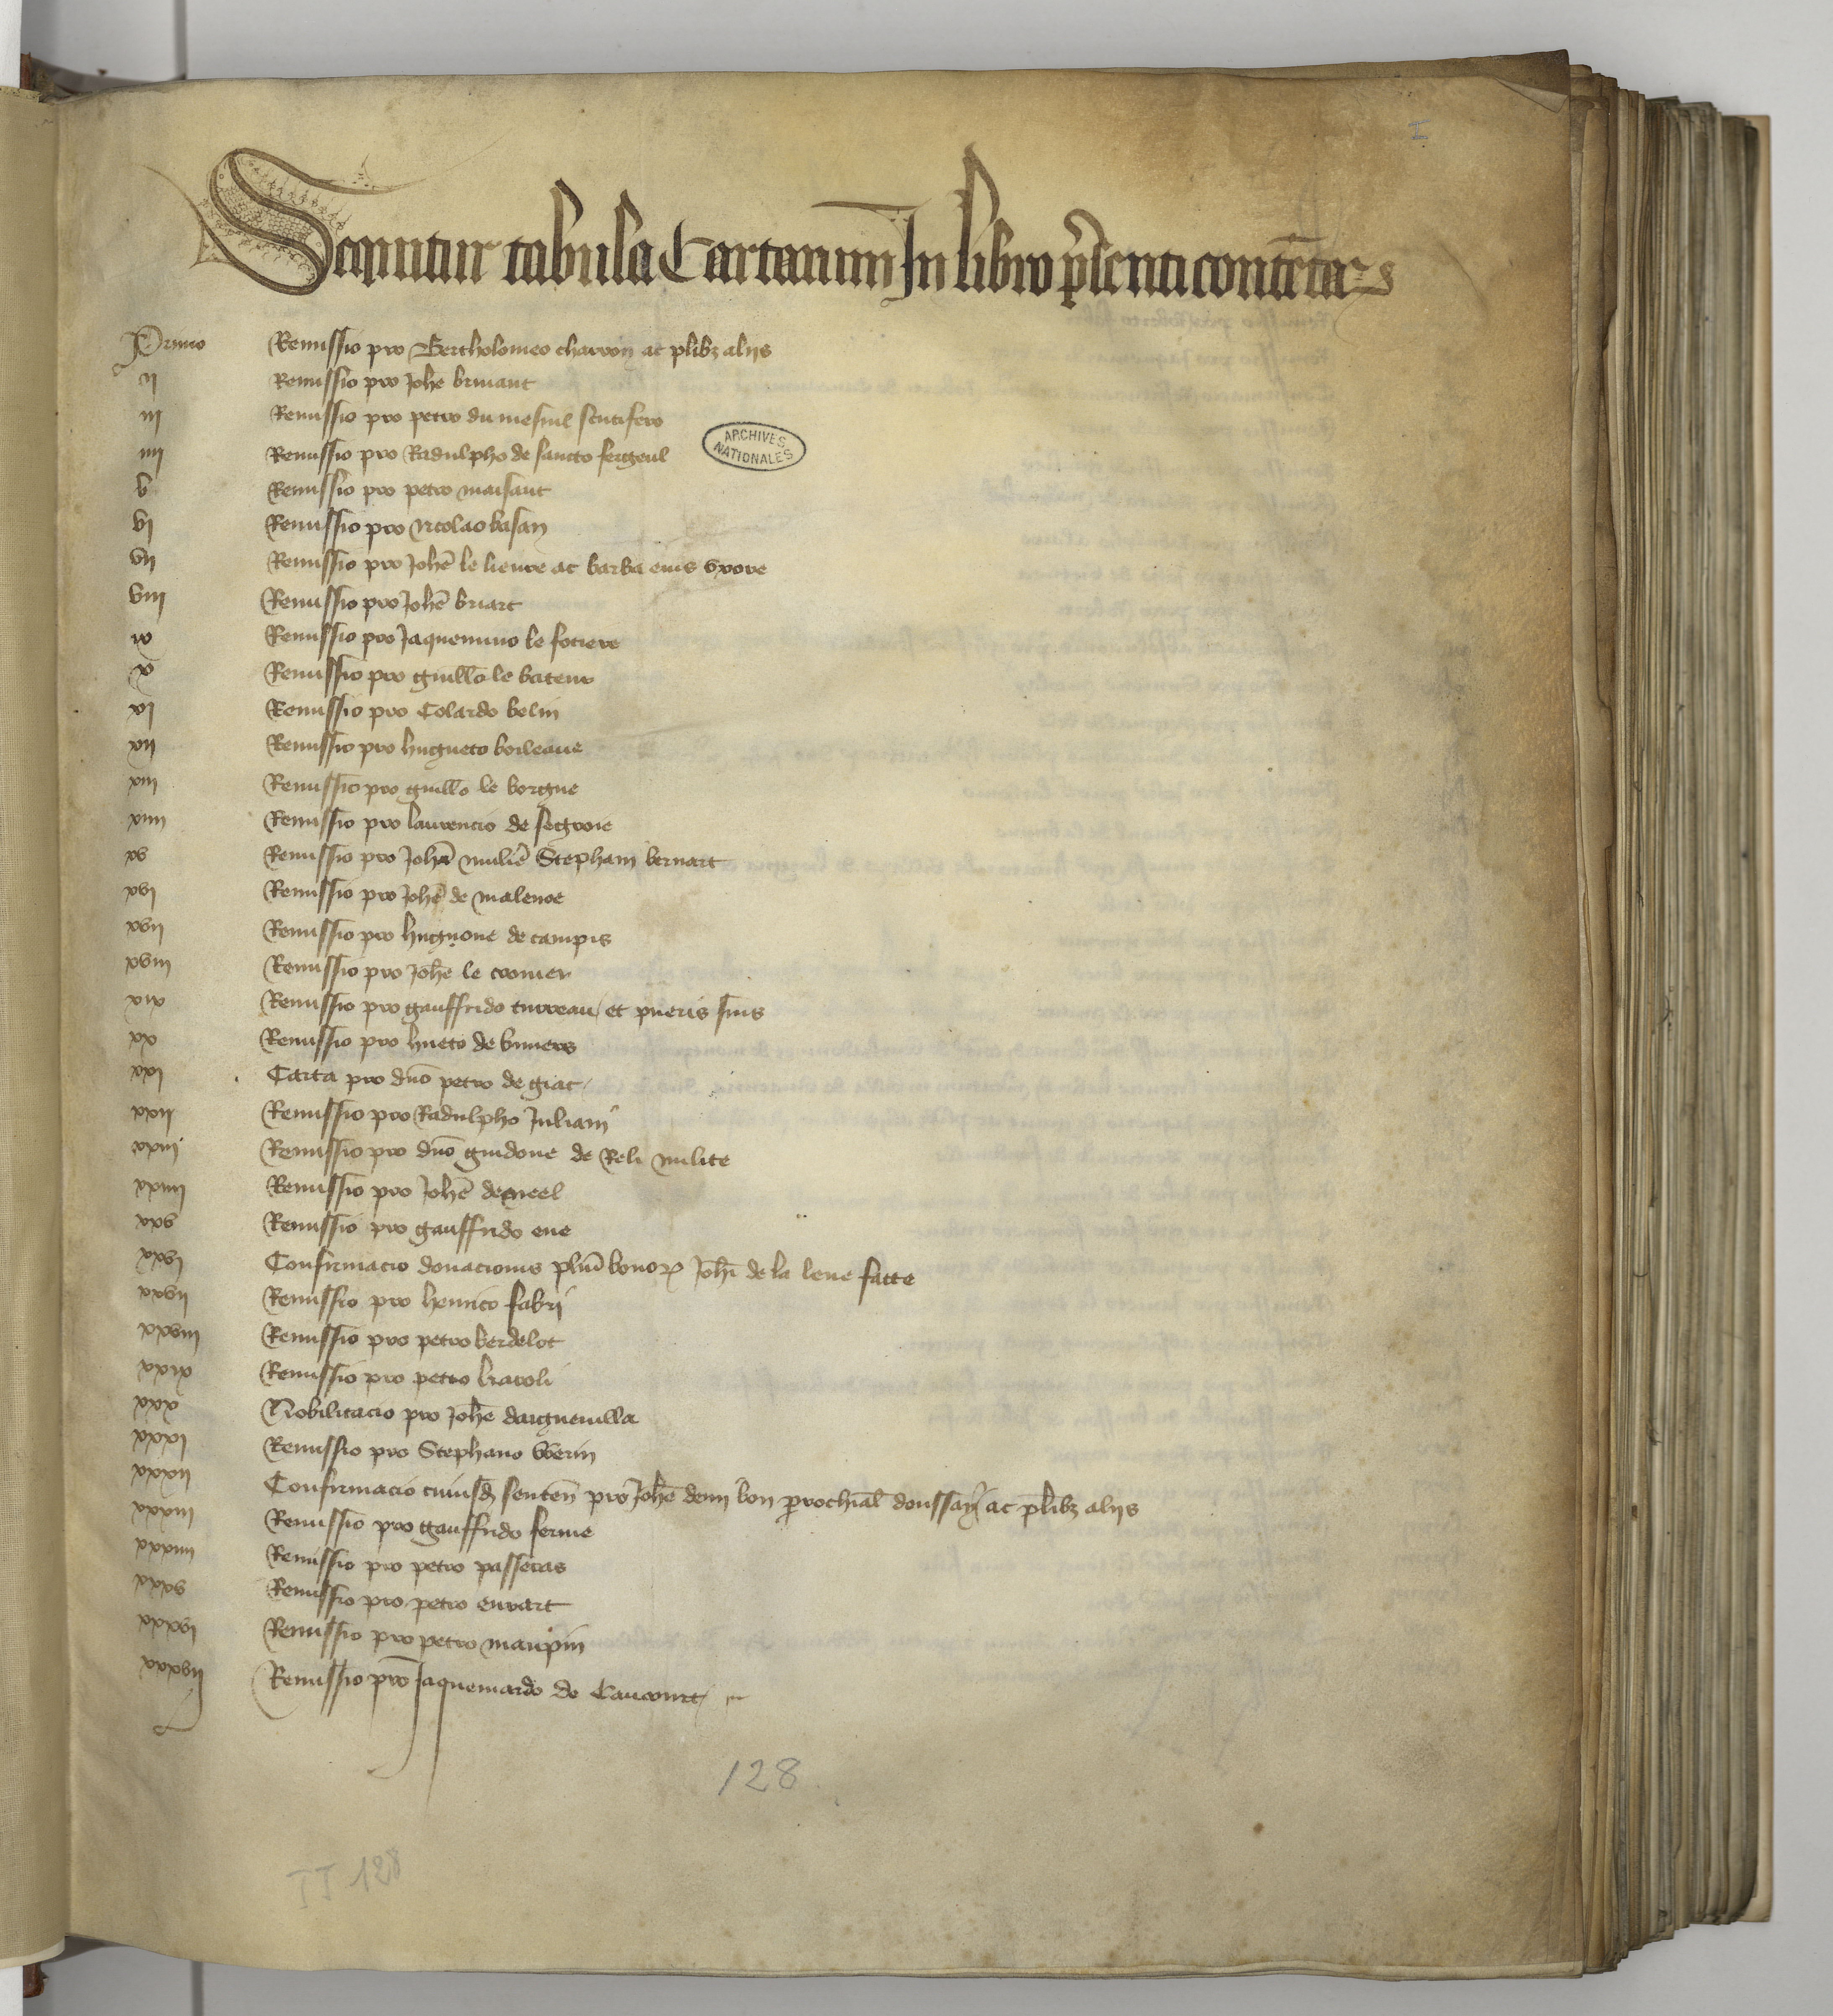 I
Sequntur tabula Cartarum In libro p̄senti contētar̄
Primo Remissio pro Bertholomeo charron ac plibꝫ aliis
ii Remissio pro Johe briuaut
iii Remissio pro petro du mesnil scutifero
iiii Remissio pro Radulpho de sancto sergeul
v Remissio pro petro maisaut
vi Remissio pro Nicolao basan
vii Remissio pro Johē le lieure ac barba eius vxore
viii Remissio pro Johē briart
ix Remissio pro Jaquemino le fotiere
x Remissio pro guillō le bateur
xi Remissio pro Colardo belin
xii Remissio pro hugueto boileaue
xiii Remissio pro guillō le borgne
xiiii Remissio pro laurencio de segroie
xv Remissio pro Johā muliē Stephani bernart
xvi Remissio pro Johē de malenoe
xvii Remissio pro hugnone de campis
xviii Remissio pro Johē le cromer
xix Remissio pro gauffrido turreau et pueris suis
xx Remissio pro hueto de vimers
xxi Carta pro dno petro de giac
xxii Remissio pro Radulpho Juliani
xxiii Remissio pro dno guidone de Reli milite
xxiiii Remissio pro Johē demeel
xxv Remissio pro gauffrido eue
xxvi Confirmacio donacionis pluī bonoꝝ Johi de la leue facte
xxvii Remissio pro henrico fabri
xxviii Remissio pro petro berdelot
xxix Remissio pro petro karoli
xxx Nobilitacio pro Johē darguenilla
xxxi Remissio pro Stephano Werin
xxxii Confirmacio cuiusd senten pro Johē denn bon ꝑrochial doussay ac plibꝫ aliis
xxxiii Remissio pro gauffrido ferme
xxxiiii Remissio pro petro passecas
xxxv Remissio pro petro euvart
xxxvi Remissio pro petro maupin
xxxvii Remissio pro Jaquemardo de Caucourt
ARCHIVES
NATIONALES
128
JJ 128